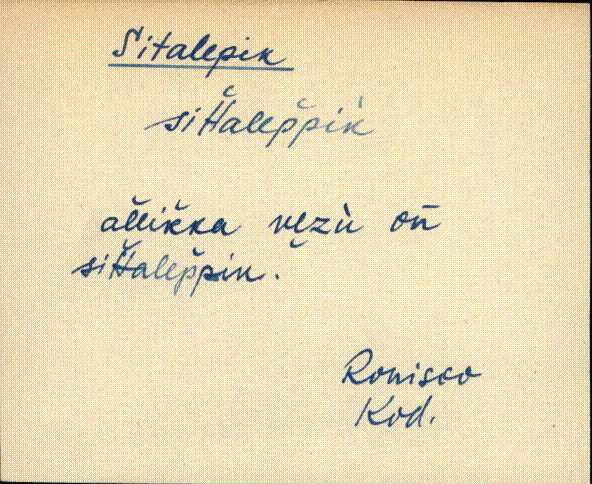 Sitalepik
sit̆t̆alep̆pik̀
al̆l̆ik̆ka vẹzù on̄
sit̆t̆alep̆pin.
Ronisoo
Kod.